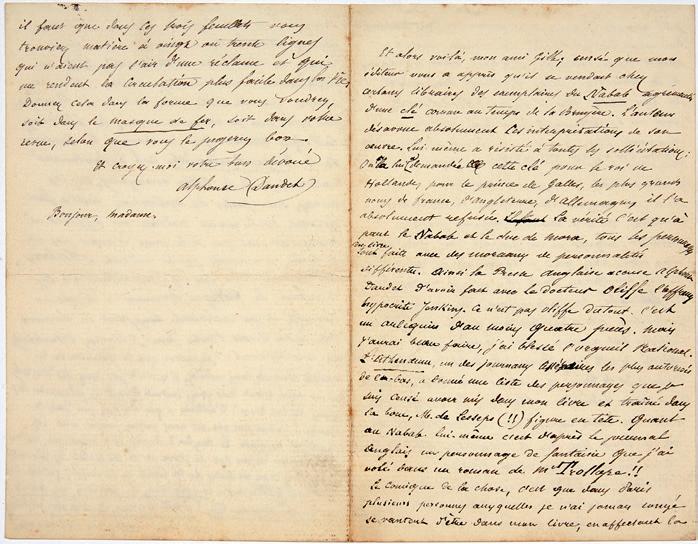 il faut que dans ces trois feuillets vous
trouviez matière à vingt ou trente lignes
qui n'aient pas l'air d'une réclame et qui
me rendent la circulation plus facile dans
Donnez cela dans la forme que vous voudrez,
soit dans le masque de fer, soit dans votre
revue, selon que vous le jugerez bon.
Et croyez-moi votre bien dévoué
Alphonse Daudet
Bonjour, madame.
Et alors voilà, mon ami Gille, sensé que mon
éditeur vous a appris qu'il se vendait chez
certains libraires des exemplaires du Nabab agrémentés
d'une clé comme au temps de la Bruyère. L'auteur
désavoue absolument les interprétations de son
œuvre. Lui même a résisté à toutes les sollicitations.
On la lui demandée cette clé pour le roi de
Hollande, pour le prince de Galles, les plus grands
noms de france, d'Angleterre, d'Allemagne, il l'a
absolument refusée. La vérité c'est qu'à
part le Nabab et le duc de mora, tous les personnages
du livre sont faits avec des morceaux de personnalités
différentes. Ainsi la Presse anglaise accuse Alphonse
Daudet d'avoir fait avec le docteur Oliffe l'affreux
hypocrite Jenkins. Ce n'est pas Oliffe du tout. C'est
un arlequin d'au moins quatre pièces. Mais
j'aurai beau faire, j'ai blessé l'orgueil National.
L'Atheneum, un des journaux littéraires les plus autorisés
de là-bas, a donné une liste des personnages que je
suis censé avoir mis dans mon livre et traîné dans
la boue, M. de Lesseps (!!) figure en tête. Quant
au Nabab lui-même c'est d'après le journal
Anglais un personnage de fantaisie que j'ai
volé dans un roman de Mr Trollope!!
Le comique de la chose, c'est que dans Paris
plusieurs personnes auxquelles je n'ai jamais songé
se vantent d'être dans mon livre, en affectant la